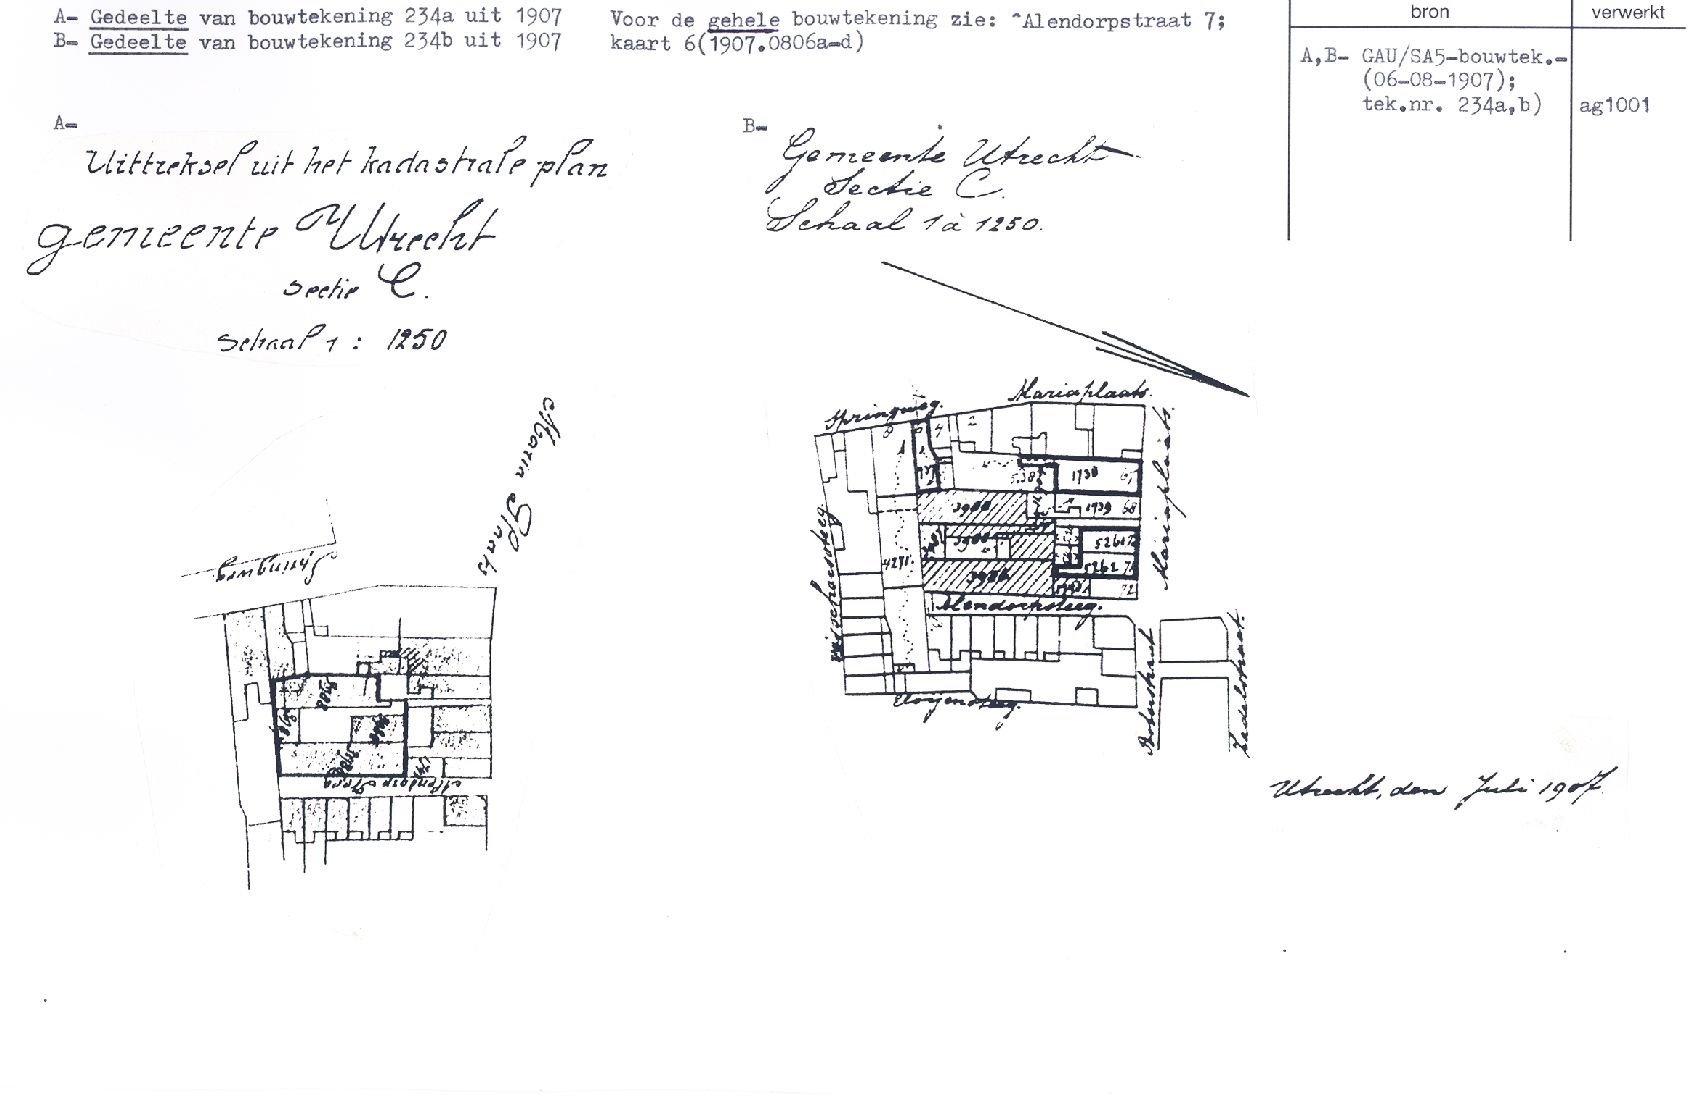 A- Gedeelte van bouwtekening 234a uit 1907
B- Gedeelte van bouwtekening 234b uit 1907
Voor de gehele bouwtekening zie: ^Alendorpstraat 7;
kaart 6(1907.0806a-d)
bron
verwerkt
A,B- GAU/SA5-bouwtek.-
(06-08-1907);
tek.nr. 234a,b)
ag1001
A-
Uittreksel uit het kadastrale plan
gemeente Utrecht
sectie C.
schaal 1 : 1250
Maria Plaats
Springweg
Alendorp Steeg
B-
Gemeente Utrecht
Sectie C.
Schaal 1 à 1250.
Mariaplaats.
Springweg.
Mariaplaats.
2
4
1738
1739 68
3986
4271
5262
72
Alendorpsteeg.
Visschersteeg.
Eloyensteeg.
Boterstraat
Zadelstraat.
Utrecht, den Juli 1907.